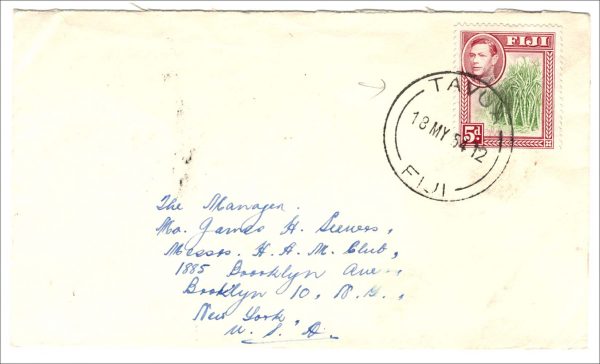 FIJI
5d.
TAVUA
18 MY 54 12
FIJI
The Manager.
Mo. James H. Seewers,
Messos. H. A. M. Club,
1885 Boorklyn Ave.,
Booklyn 10, N.Y.,
New York
U.S.A.